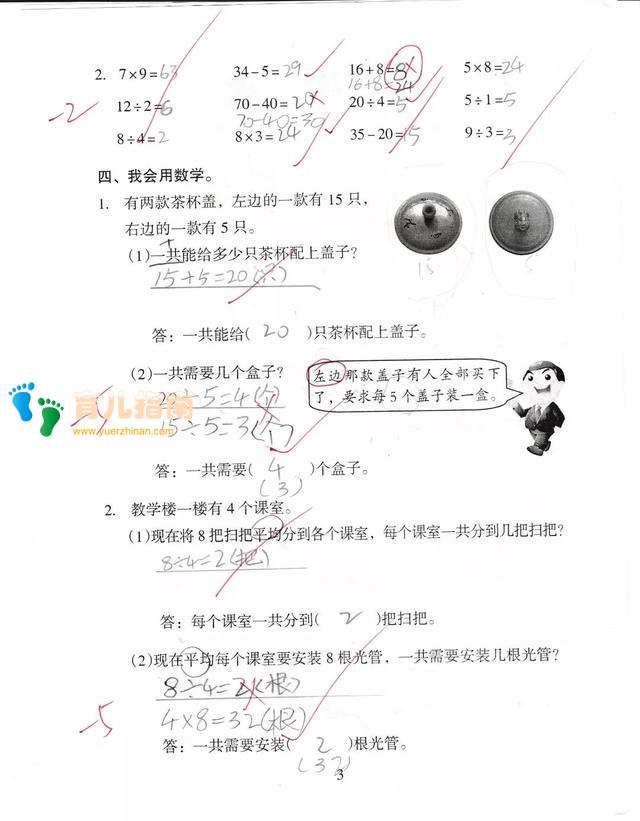 2. 7×9=63 34-5=29 16+8=8 5×8=24
16+8=24
-2 12÷2=6 70-40=20 20÷4=5 5÷1=5
70-40=30
8÷4=2 8×3=24 35-20=15 9÷3=3
四、我会用数学。
1. 有两款茶杯盖，左边的一款有 15 只，
右边的一款有 5 只。
(1)一共能给多少只茶杯配上盖子?
15+5=20(只)
15 5
答：一共能给( 20 )只茶杯配上盖子。
(2)一共需要几个盒子?
左边那款盖子有人全部买下
了，要求每 5 个盖子装一盒。
20÷5=4(个)
15÷5=3(个)
育儿指南
www.yuerzhinan.com
答：一共需要( 4 )个盒子。
(3)
2. 教学楼一楼有 4 个课室。
(1)现在将 8 把扫把平均分到各个课室，每个课室一共分到几把扫把?
8÷4=2(把)
答：每个课室一共分到( 2 )把扫把。
(2)现在平均每个课室要安装 8 根光管，一共需要安装几根光管?
8÷4=2(根)
-5
4×8=32(根)
答：一共需要安装( 2 )根光管。
(32)
3